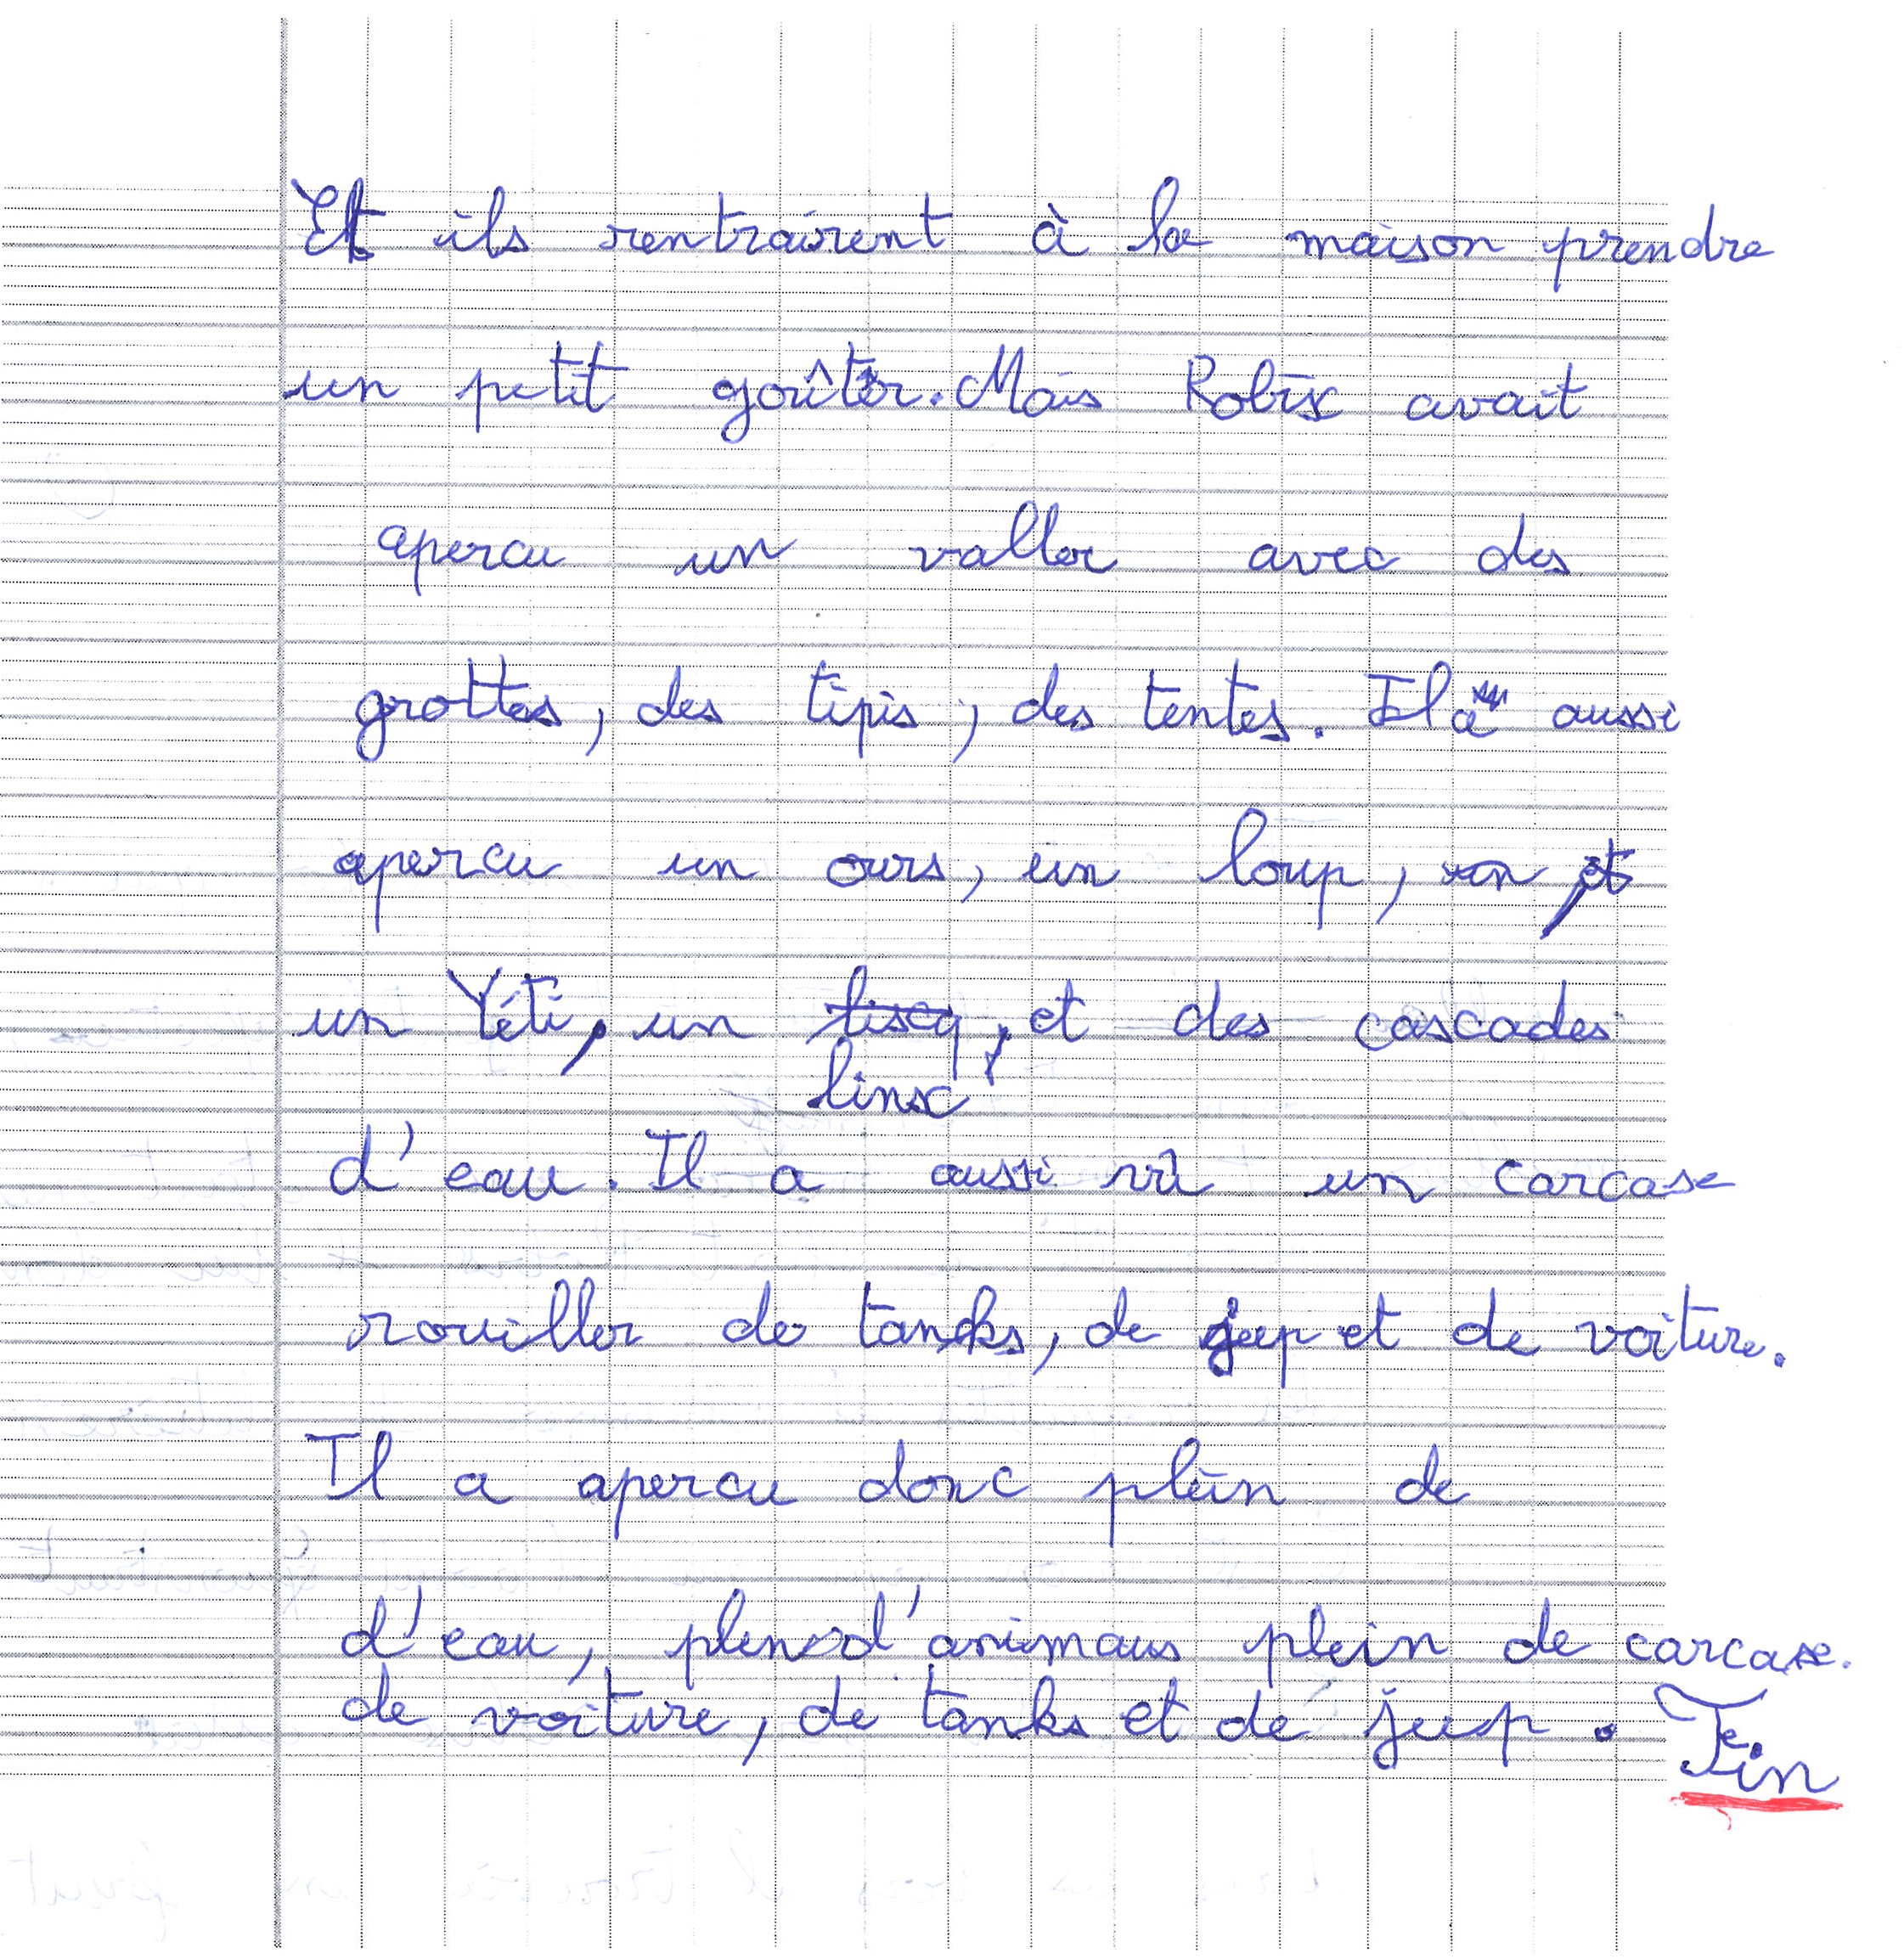 Et ils rentrairent à la maison prendre
un petit goûter. Mais Robix avait
apercu un valler avec des
grottes, des tipis, des tentes. Il a aussi
apercu un ours, un loup,
un Yéti, un et des cascades
linx
d'eau. Il a aussi vû un carcase
rouiller de tanks, de jeep et de voiture.
Il a apercu donc plein de
d'eau, plein d'animaus plein de carcase.
de voiture, de tanks et de jeep. Fin